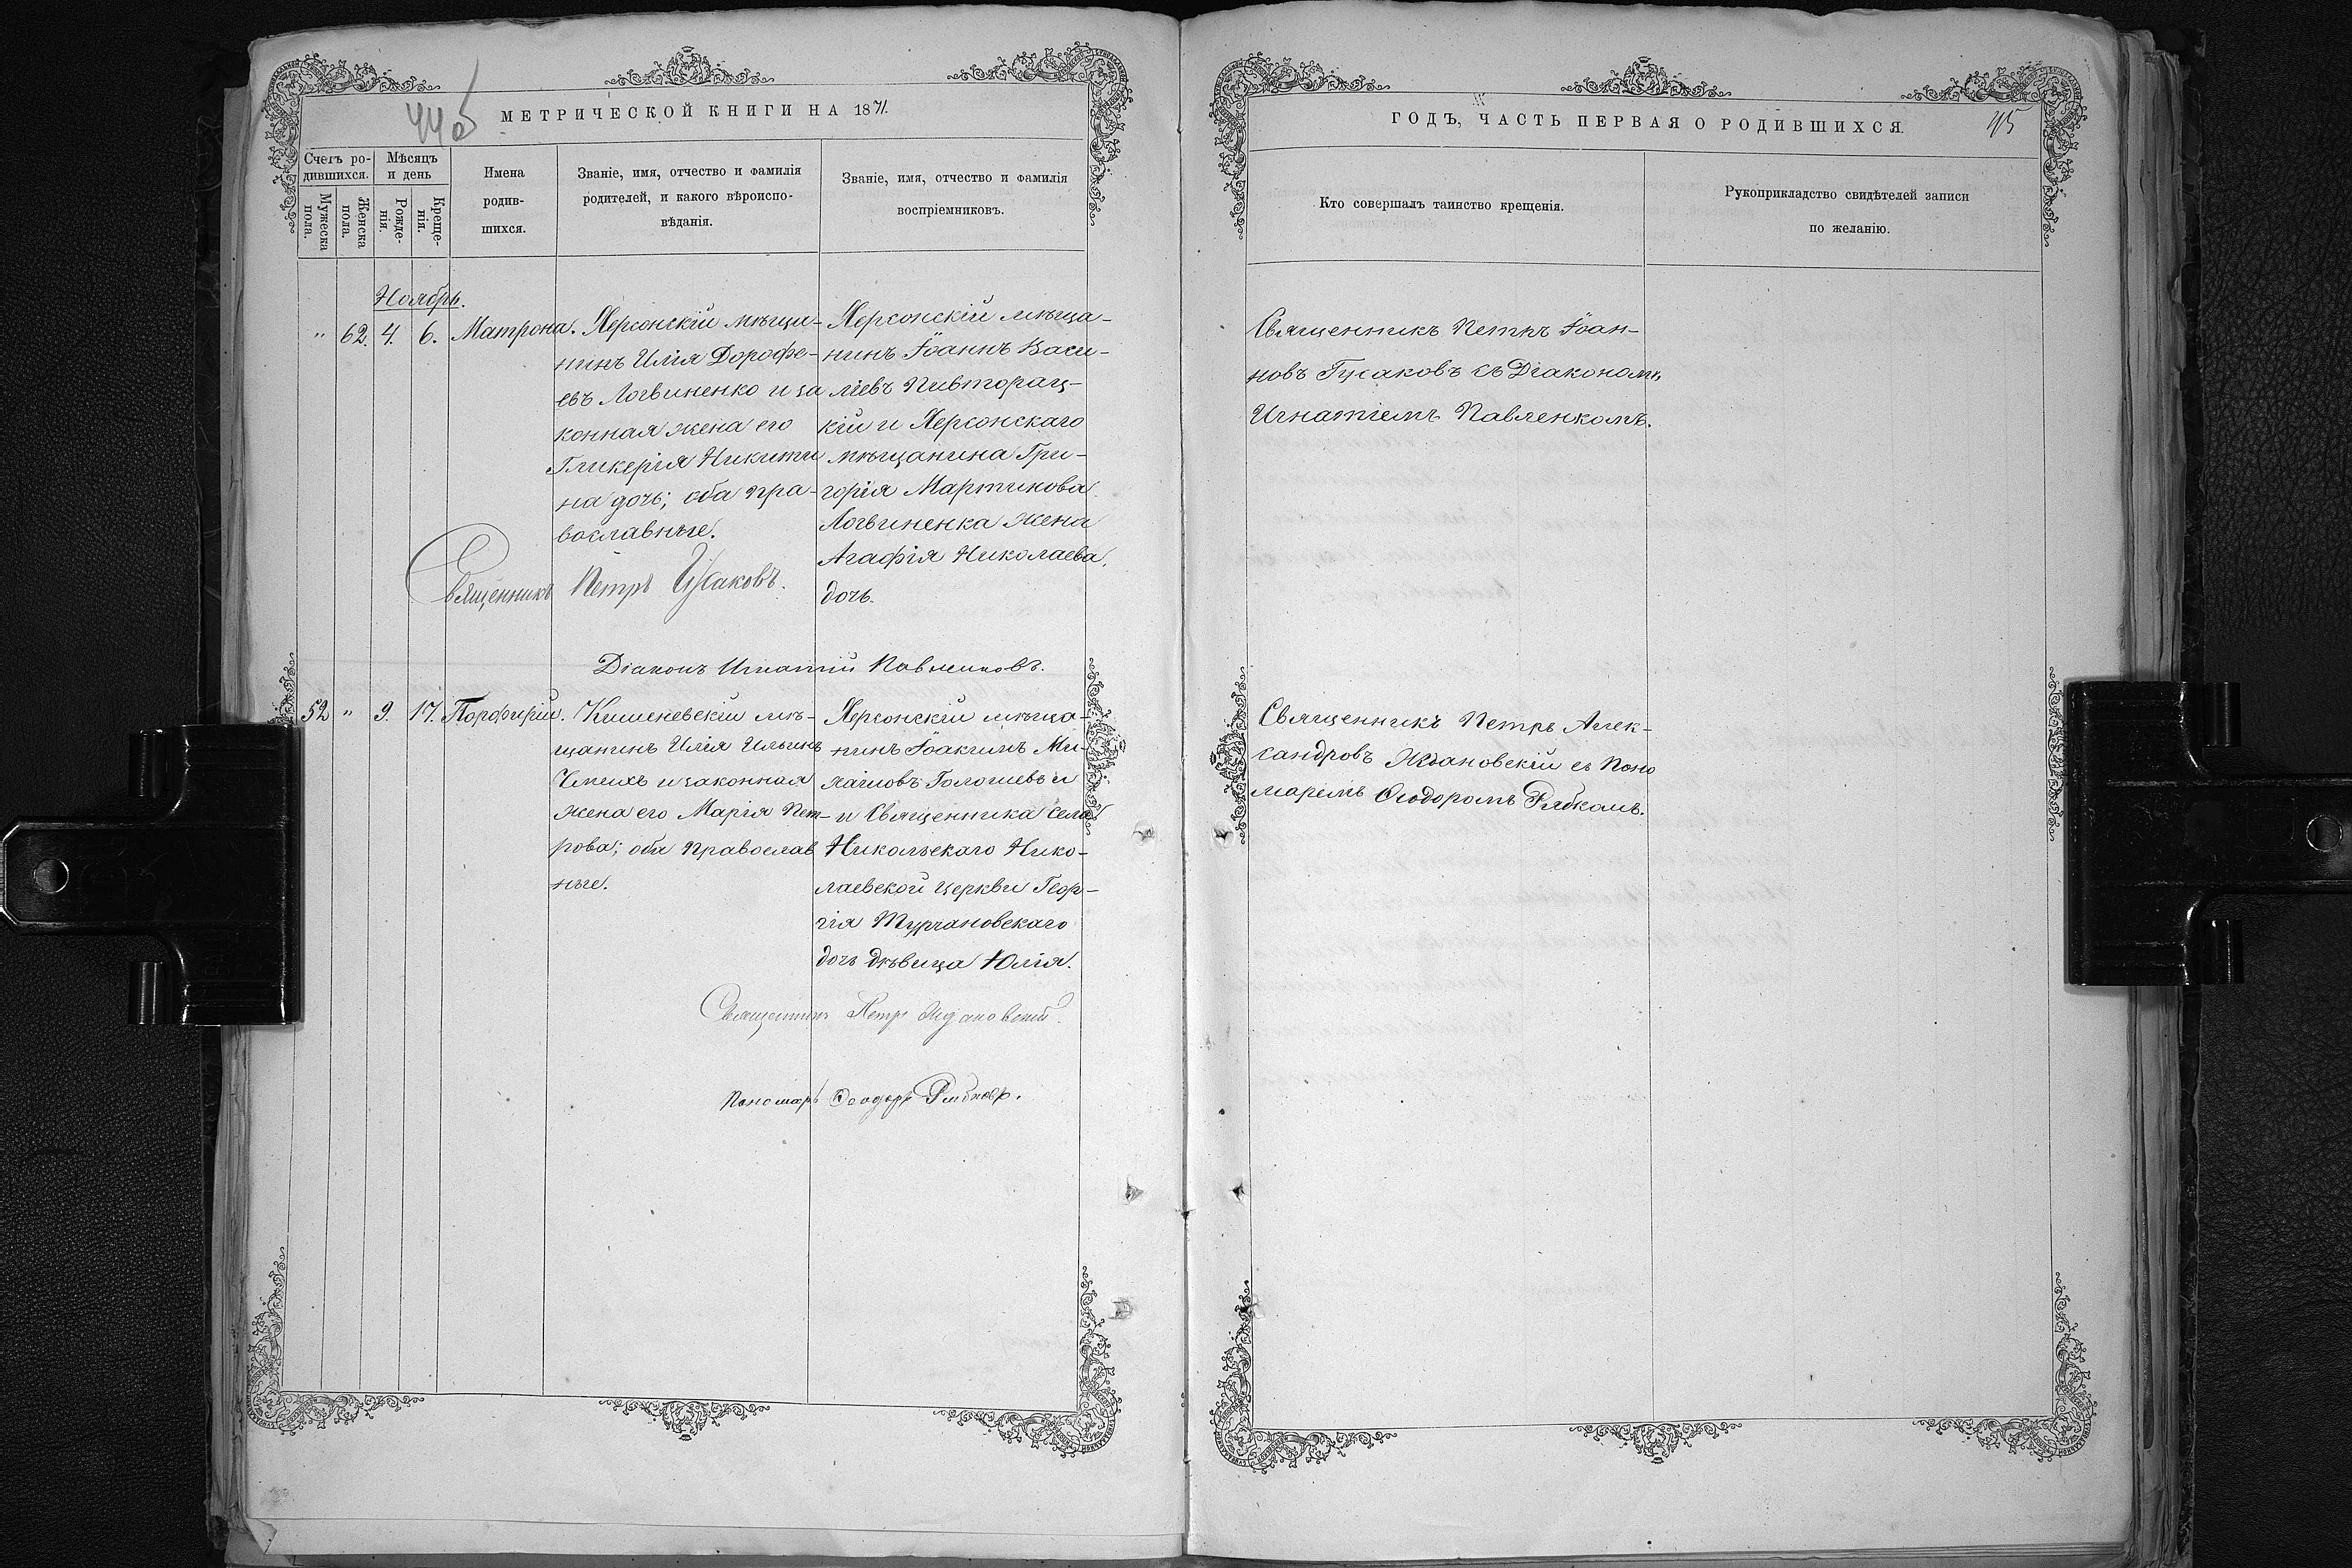 44об
МЕТРИЧЕСКОЙ КНИГИ НА 1871.
Счетъ ро-
дившихся.
Мужеска
пола.
Женска
пола.
Мѣсяцъ
и день
Рожде-
нія.
Креще-
нія.
Имена
родив-
шихся.
Званіе, имя, отчество и фамилія
родителей, и какого вѣроиспо-
вѣданія.
Званіе, имя, отчество и фамилія
воспріемниковъ.
Ноябрь.
" 62. 4. 6. Матрона.
Херсонскій мѣща-
нинъ Илія Дорофе-
евъ Логвиненко и за
конная жена его
Гликерія Никити
на дочь; оба пра-
вославные.
Херсонскій мѣща-
нинъ Іоаннъ Васи-
ліевъ Пивторац-
кій и Херсонскаго
мѣщанина Гри-
горія Мартинова
Логвиненка жена
Агафія Николаева
дочь.
Священникъ Петръ Гусаковъ.
Діаконъ Игнатій Павленковъ.
52 " 9. 17. Порфирій.
Кишеневскій мѣ-
щанинъ Илія Ильинъ
и законная
жена его Марія Пет-
рова; оба православ
ные.
Херсонскій мѣща-
нинъ Іоакимъ Ми-
хаиловъ Гологиевъ и
и Священника села
Никольскаго Нико-
лаевской церкви Геор-
гія Турчановскаго
дочь дѣвица Юлія.
Священникъ Петръ Ждановскій.
Пономарь Ѳеодоръ Рябковъ.
ГОДЪ, ЧАСТЬ ПЕРВАЯ О РОДИВШИХСЯ.
45
Кто совершалъ таинство крещенія.
Рукоприкладство свидѣтелей записи
по желанію.
Священникъ Петръ Іоан-
новъ Гусаковъ съ Діакономъ
Игнатіемъ Павленкомъ.
Священникъ Петръ Алек-
сандровъ Ждановскій съ Поно
маремъ Ѳеодоромъ Рябкомъ.